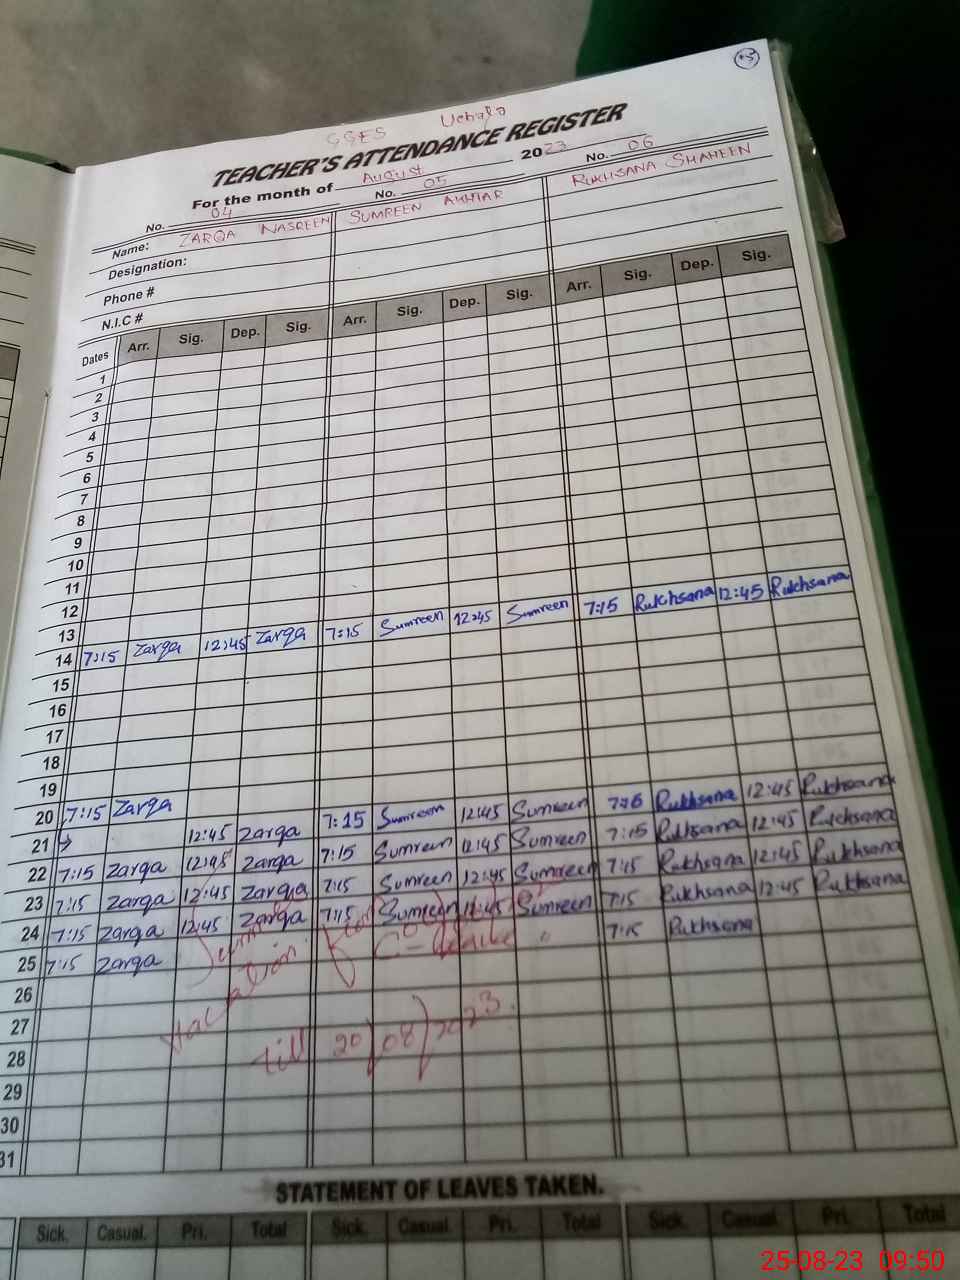 GGES Ucbala
TEACHER'S ATTENDANCE REGISTER
For the month of August 2023
No. 04 No. 05 No. 06
Name: ZARQA NASREEN SUMREEN AKHTAR RUKHSANA SHAHEEN
Designation:
Phone #
N.I.C #
Dates Arr. Sig. Dep. Sig. Arr. Sig. Dep. Sig. Arr. Sig. Dep. Sig.
1
2
3
4
5
6
7
8
9
10
11
12
13
14 7:15 Zarqa 12:45 Zarqa 7:15 Sumreen 12:45 Sumreen 7:15 Rukhsana 12:45 Rukhsana
15
16
17
18
19
20 7:15 Zarqa
21 12:45 Zarqa 7:15 Sumreen 12:45 Sumreen Rukhsana 12:45 Rukhsana
22 7:15 Zarqa 12:45 Zarqa 7:15 Sumreen 12:45 Sumreen 7:15 Rukhsana 12:45 Rukhsana
23 7:15 Zarqa 12:45 Zarqa 7:15 Sumreen 12:45 Sumreen 7:15 Rukhsana 12:45 Rukhsana
24 7:15 Zarqa 12:45 Zarqa 7:15 Sumreen 12:45 Sumreen 7:15 Rukhsana 12:45 Rukhsana
25 7:15 Zarqa 7:15 Rukhsana
26
27
28
29
30
31
vacation for
till 20/08/2023.
STATEMENT OF LEAVES TAKEN.
Sick. Casual. Pri. Total Sick. Casual. Pri. Total Sick. Casual. Pri. Total
25-08-23 09:50